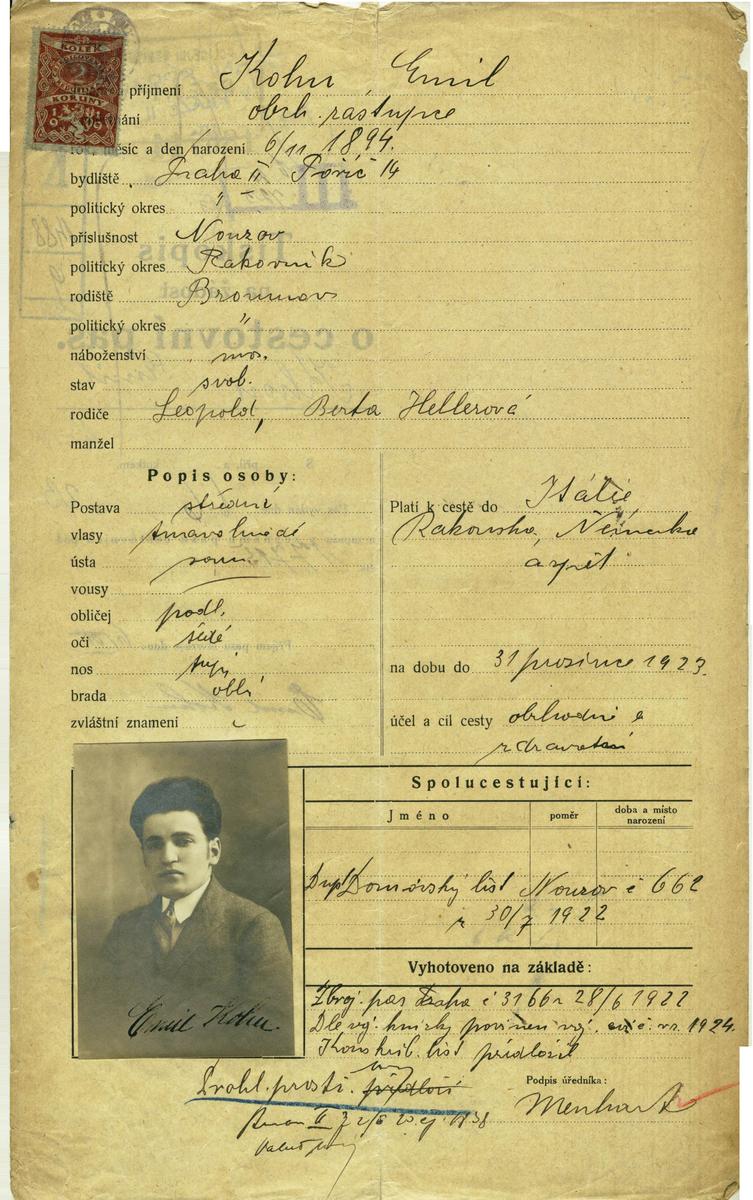 KOLEK
2
KORUNY
1919
příjmení Kohn, Emil
obch. zástupce
měsíc a den narození 6/11 1894.
bydliště Praha II Poříč 14
politický okres "
příslušnost Nouzov
politický okres Rakovník
rodiště Broumov
politický okres "
náboženství mos.
stav svob.
rodiče Leopold, Berta Hellerová
manžel
Popis osoby:
Postava střední
vlasy tmavohnědé
ústa soum.
vousy
obličej podl.
oči šedé
nos tupý
brada oblá
zvláštní znamení
Platí k cestě do Itálie
Rakouska, Německa
a zpět
na dobu do 31 prosince 1923.
účel a cíl cesty obchodní a
zdravotní
Spolucestující:
Jméno
poměr
doba a místo
narození
Dupl. Domovský list Nouzov č 662
z 30/7 1922
Vyhotoveno na základě:
Zbroj. pas Praha č 3166 z 28/6 1922
Dle voj. knížky povinen voj. cvič. v r. 1924.
Konskrib. list předložil
Emil Kohn.
Prohl. prosti.
Podpis úředníka:
Menhart